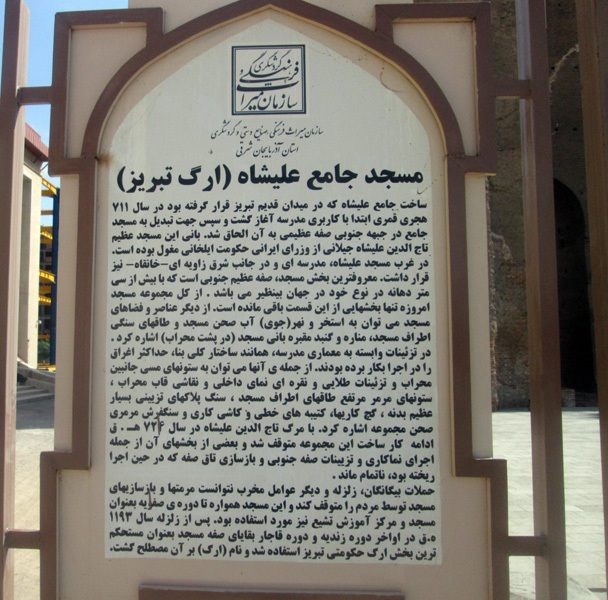 سازمان میراث فرهنگی گردشگری
سازمان میراث فرهنگی، صنایع دستی و گردشگری
استان آذربایجان شرقی
مسجد جامع علیشاه (ارگ تبریز)
ساخت جامع علیشاه که در میدان قدیم تبریز قرار گرفته بود در سال ۷۱۱
هجری قمری ابتدا با کاربری مدرسه آغاز گشت و سپس جهت تبدیل به مسجد
جامع در جبهه جنوبی صفه عظیمی به آن الحاق شد. بانی این مسجد عظیم
تاج الدین علیشاه جیلانی از وزرای ایرانی حکومت ایلخانی مغول بوده است.
در غرب مسجد علیشاه، مدرسه ای و در جانب شرق زاویه ای-خانقاه- نیز
قرار داشت. معروفترین بخش مسجد، صفه عظیم جنوبی است که با بیش از سی
متر دهانه در نوع خود در جهان بینظیر می باشد . از کل مجموعه مسجد
امروزه تنها بخشهایی از این قسمت باقی مانده است. از دیگر عناصر و فضاهای
مسجد می توان به استخر و نهر(جوی) آب صحن مسجد و طاقهای سنگی
اطراف مسجد، مناره و گنبد مقبره بانی مسجد (در پشت محراب) اشاره کرد .
در تزئینات وابسته به معماری مدرسه، همانند ساختار کلی بنا، حداکثر اغراق
را در اجرا بکار برده بودند. از جمله ی آنها می توان به ستونهای مسی جانبین
محراب و تزئینات طلایی و نقره ای نمای داخلی و نقاشی قاب محراب ،
ستونهای مرمر مرتفع طاقهای اطراف مسجد ، سنگ پلاکهای تزیینی بسیار
عظیم بدنه ، گچ کاریها، کتیبه های خطی و کاشی کاری و سنگفرش مرمری
صحن مجموعه اشاره کرد. با مرگ تاج الدین علیشاه در سال ۷۲۴ هـ . ق
ادامه کار ساخت این مجموعه متوقف شد و بعضی از بخشهای آن از جمله
اجرای نماکاری و تزیینات صفه جنوبی و بازسازی تاق صفه که در حین اجرا
ریخته بود، ناتمام ماند .
حملات بیگانگان، زلزله و دیگر عوامل مخرب نتوانست مرمتها و بازسازیهای
مسجد توسط مردم را متوقف کند و این مسجد همواره تا دوره ی صفویه بعنوان
مسجد و مرکز آموزش تشیع نیز مورد استفاده بود. پس از زلزله سال ۱۱۹۳
ه.ق در اواخر دوره زندیه و دوره قاجار بقایای صفه مسجد بعنوان مستحکم
ترین بخش ارگ حکومتی تبریز استفاده شد و نام (ارگ) بر آن مصطلح گشت.